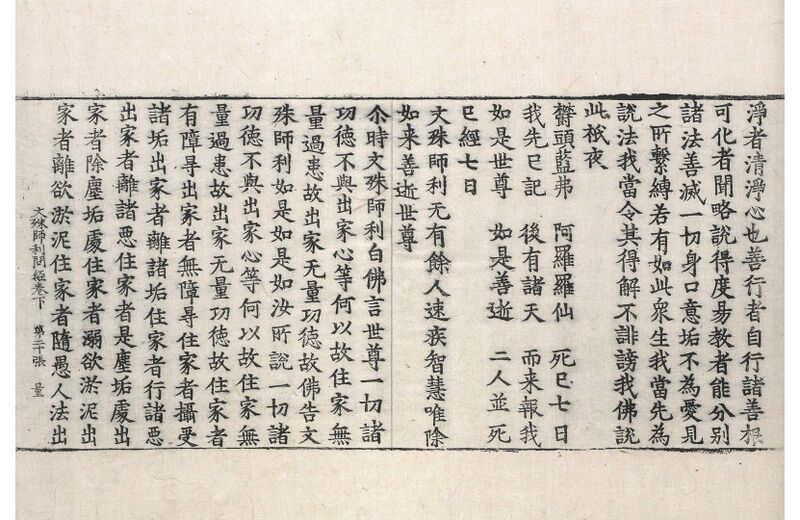 淨者清淨心也善行者自行諸善根
可化者聞略說得度易教者能分別
諸法善滅一切身口意垢不為愛見
之所繫縛若有如此衆生我當先為
說法我當令其得解不誹謗我佛說
此祇夜
欝頭藍弗　阿羅羅仙　死已七日
我先已記　後有諸天　而来報我
如是世尊　如是善逝　二人並死
已經七日
文殊師利无有餘人速疾智慧唯除
如来善逝世尊
尒時文殊師利白佛言世尊一切諸
功德不與出家心等何以故住家無
量過患故出家无量功德故佛告文
殊師利如是如是如汝所說一切諸
功德不與出家心等何以故住家無
量過患故出家无量功德故住家者
有障㝵出家者無障㝵住家者攝受
諸垢出家者離諸垢住家者行諸惡
出家者離諸惡住家者是塵垢處出
家者除塵垢處住家者溺欲淤泥出
家者離欲淤泥住家者隨愚人法出
文殊師利問經卷下　第二十張　量